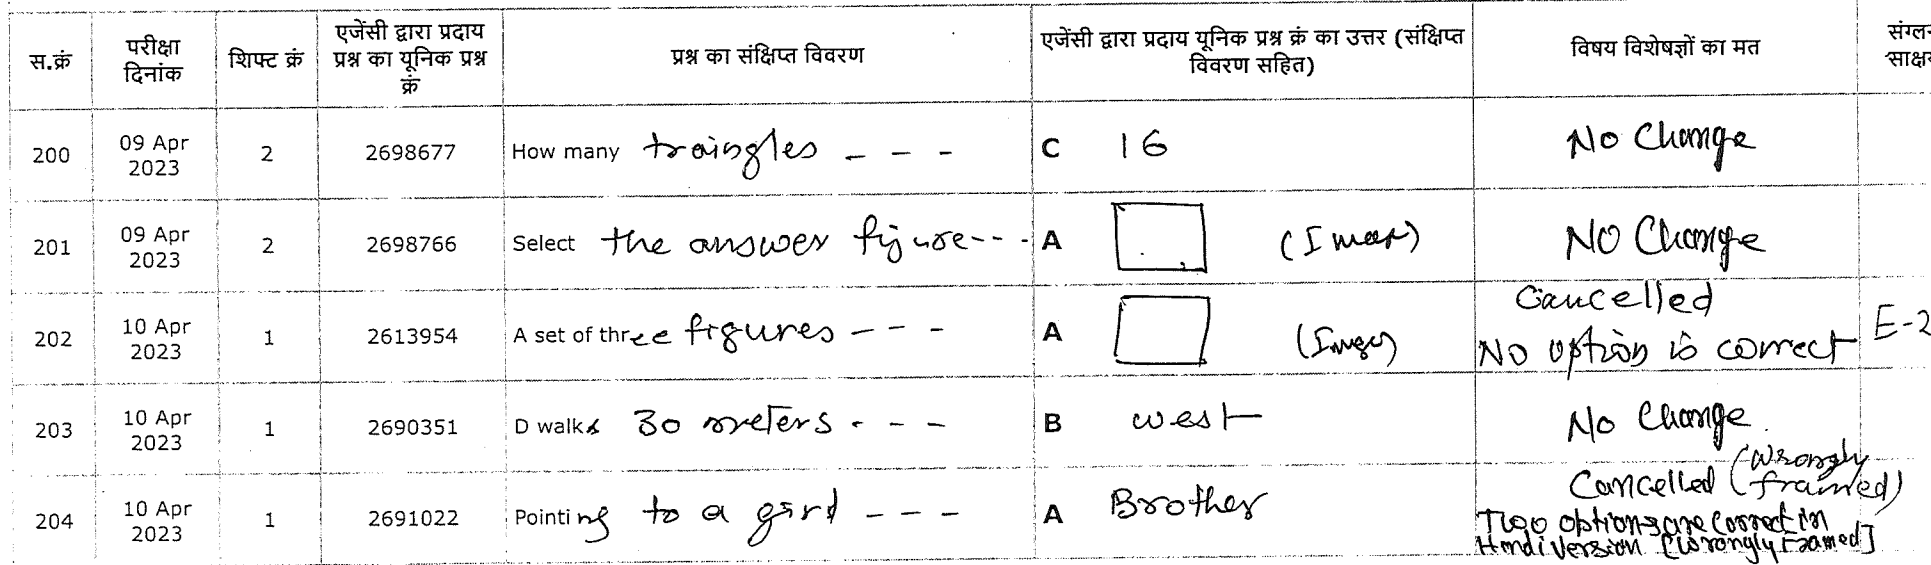 स.क्रं परीक्षा दिनांक शिफ्ट क्रं एजेंसी द्वारा प्रदाय प्रश्न का यूनिक प्रश्न क्रं प्रश्न का संक्षिप्त विवरण एजेंसी द्वारा प्रदाय यूनिक प्रश्न क्रं का उत्तर (संक्षिप्त विवरण सहित) विषय विशेषज्ञों का मत
200 09 Apr 2023 2 2698677 How many traingles - - - C 16 No Change
201 09 Apr 2023 2 2698766 Select the answer figure - - - A No Change
202 10 Apr 2023 1 2613954 A set of three figures - - - A Cancelled
No option is correct E-2
203 10 Apr 2023 1 2690351 D walks 30 meters - - - B west No Change
204 10 Apr 2023 1 2691022 Pointing to a gird - - - A Brother Cancelled (Wrongly framed)
Two options are correct in
Hindi version [Wrongly Framed]